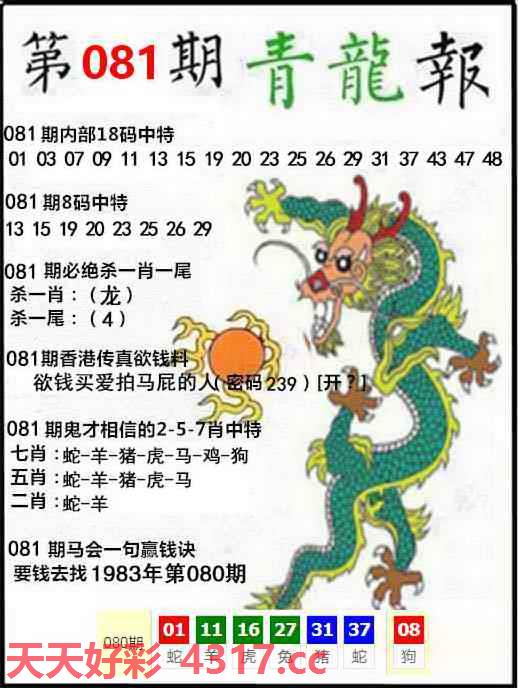 第081期青龍報
081期内部18码中特
01 03 07 09 11 13 15 19 20 23 25 26 29 31 37 43 47 48
081期8码中特
13 15 19 20 23 25 26 29
081 期必绝杀一肖一尾
杀一肖：（龙）
杀一尾：（4）
081期香港传真欲钱料
欲钱买爱拍马屁的人(密码239)[开？]
081期鬼才相信的2-5-7肖中特
七肖：蛇-羊-猪-虎-马-鸡-狗
五肖：蛇-羊-猪-虎-马
二肖：蛇-羊
081 期马会一句赢钱诀
要钱去找1983年第080期
080期 01 11 16 27 31 37 08
蛇 羊 虎 兔 猪 蛇 狗
天天好彩 4317.cc